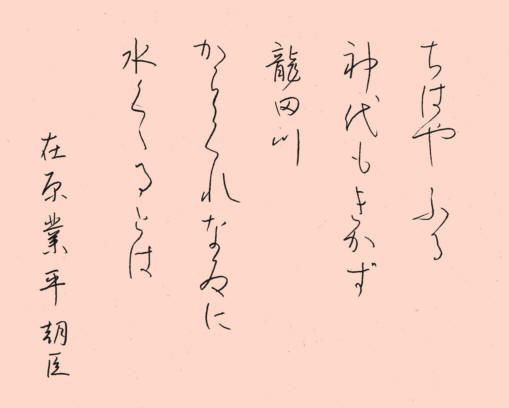 ちはやふる
神代もきかず
龍田川
からくれなゐに
水くゝるとは
在原業平朝臣